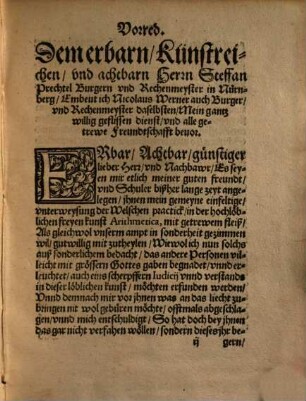 Vorred.
Dem erbarn/ Künstrei-
chen/ vnd achtbarn Herrn Steffan
Prechtel Burgern vnd Rechenmeyster in Nürn-
berg/ Embeut ich Nicolaus Werner auch Burger/
vnd Rechenmeyster daselbsten/ Mein gantz
willig geflissen dienst/ vnd alle ge-
trewe Freundtschafft beuor.
ERbar/ Achtbar/ günstiger
lieber Herr/ vnd Nachbawr/ Es sey-
en mir etlich meiner guten freundt/
vnd Schuler bißher lange zeyt ange-
legen/ jhnen mein gemeyne einfeltige/
vnterweysung der Welschen practick/ in der hochlöb-
lichen freyen kunst Arithmetica, mit getrewem fleiß/
Als gleichwol vnserm ampt in sonderheit gezimmen
wil/ gutwillig mit zutheylen/ Wiewol ich nun solchs
auß sonderlichem bedacht/ das andere Personen vil-
leicht mit grössern Gottes gaben begnadet/ vnnd er-
leuchtet/ auch eins scherpffern iudicij vnnd verstands
in dieser löblichen kunst/ möchten erfunden werden/
Vnnd demnach mir vor jhnen was an das liecht zu-
bringen nit wol gebüren möchte/ offtmals abgeschla-
gen/ vnnd mich entschuldigt/ So hat doch bey jhnen
das gar nicht verfahen wöllen/ sondern dieses jhr be-
ij gern/